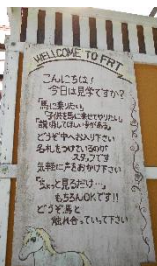 WELLCOME TO FRT
こんにちは！
今日は見学ですか？
「馬に乗りたい」
「子供を馬に乗せてやりたい」
「説明してほしい事がある」
どうぞ中へお入り下さい
名札をつけているのが
スタッフです
気軽に声をおかけ下さい
「ちょっと見るだけ…」
もちろんOKです!!
どうぞ馬と
触れ合っていって下さい